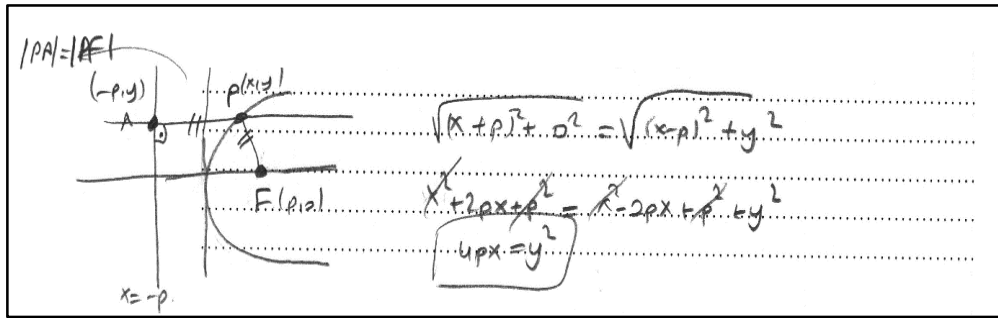 |PA|=|PF|
(-p,y)
P(x,y)
A
F(p,0)
x=-p
√(x+p)²+0² = √(x-p)²+y²
x²+2px+p² = x²-2px+p²+y²
4px=y²